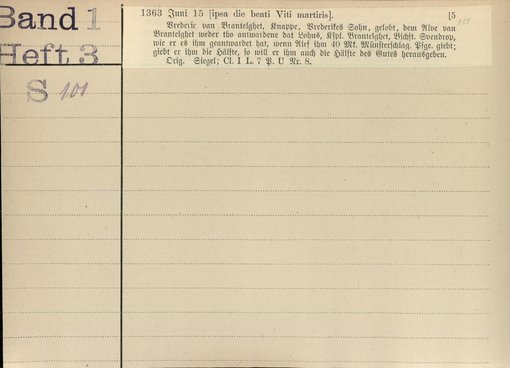 Band 1
Heft 3
S 101
1363 Juni 15 [ipsa die beati Viti martiris]. [5
101
Brederic van Brantelghet, Knappe, Brederikes Sohn, gelobt, dem Alve van
Brantelghet weder tho antwardene dat Lohus, Kspl. Brantelghet, Bschft. Svendrop,
wie er es ihm geantwardet hat, wenn Alef ihm 40 Mk. Münsterschlag. Pfge. giebt;
giebt er ihm die Hälfte, so will er ihm auch die Hälfte des Gutes herausgeben.
Orig. Siegel; Cl. I L. 7 P. U Nr. 8.